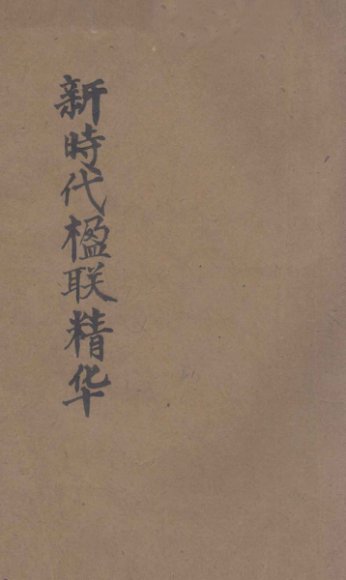 新時代楹联精华